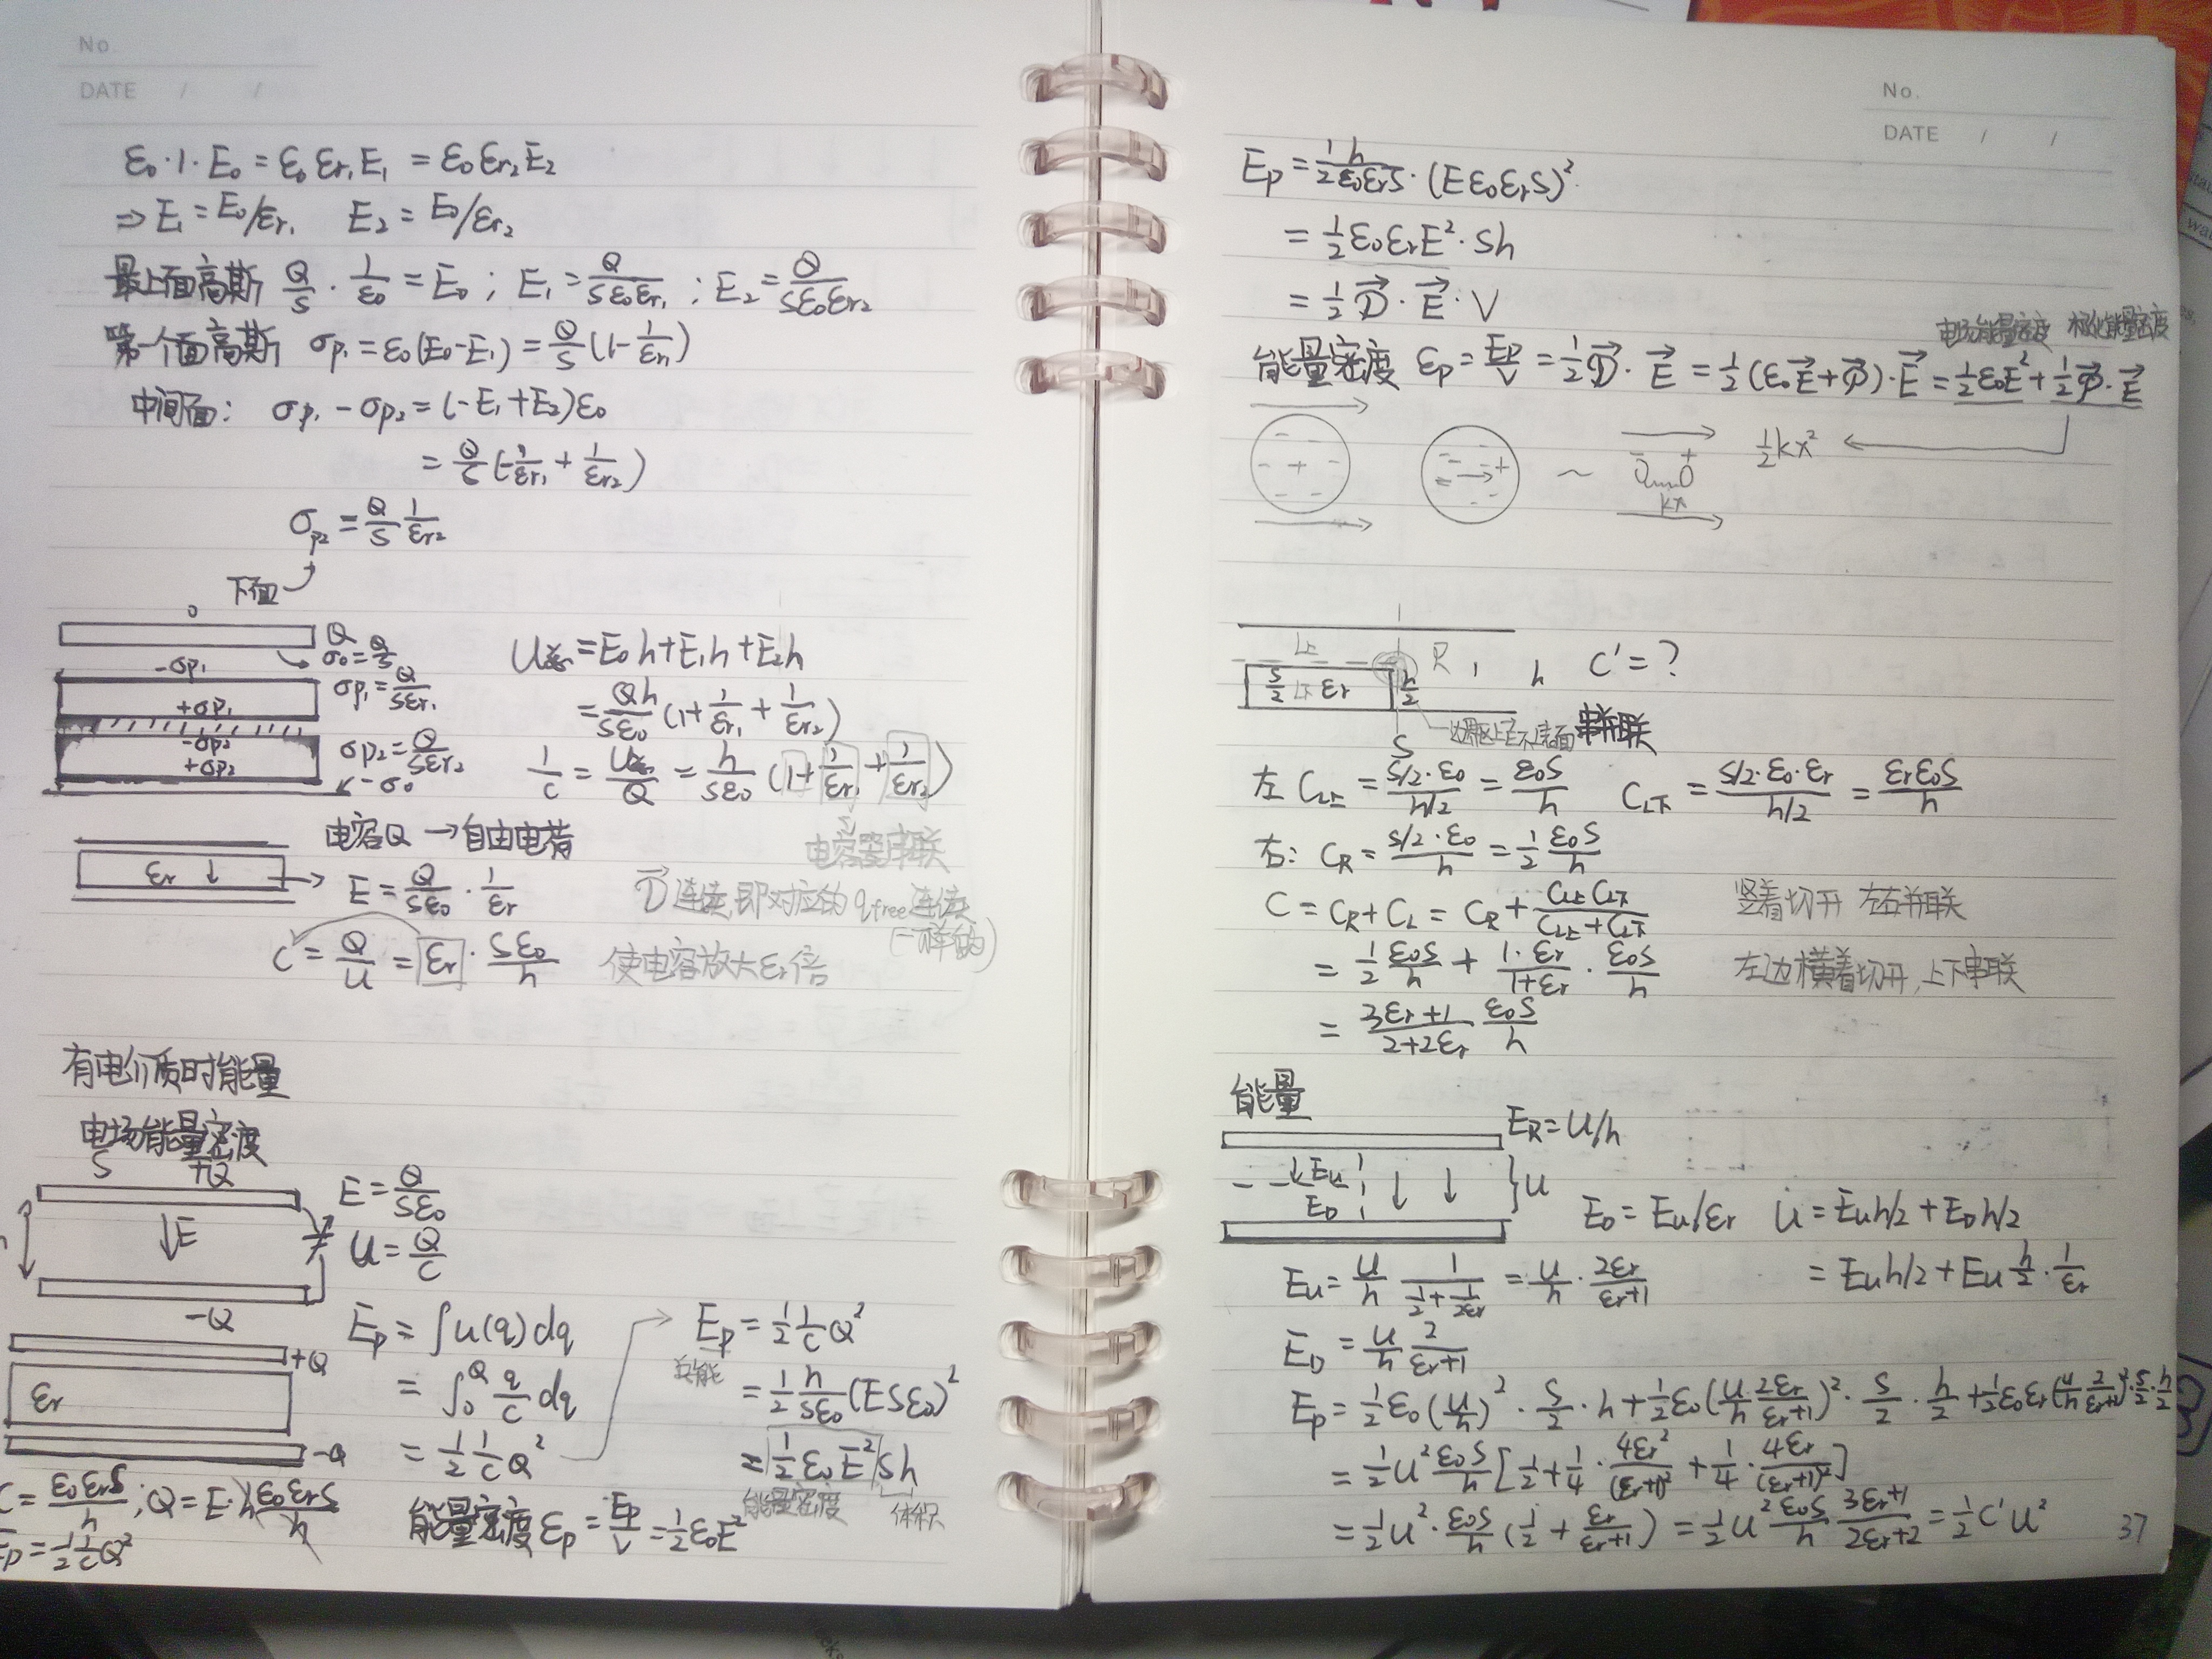 No.
DATE / /
ε₀·1·E₀ = ε₀εr₁E₁ = ε₀εr₂E₂
⇒ E₁ = E₀/εr₁ E₂ = E₀/εr₂
最上面高斯 Q/S · 1/ε₀ = E₀ ; E₁ = Q/(Sε₀εr₁) ; E₂ = Q/(Sε₀εr₂)
第一个面高斯 σp₁ = ε₀(E₀-E₁) = Q/S (1-1/εr₁)
中间面: σp₁ - σp₂ = (-E₁+E₂)ε₀
= Q/S (-1/εr₁ + 1/εr₂)
σp₂ = Q/S 1/εr₂
下面
Q
σ₀ = Q/S
-σp₁
σp₁ = Q/(Sεr₁)
+σp₁
-σp₂
σp₂ = Q/(Sεr₂)
+σp₂
-σ₀
U总 = E₀h + E₁h + E₂h
= Qh/(Sε₀) (1 + 1/εr₁ + 1/εr₂)
1/C = U总/Q = h/(Sε₀) (1 + 1/εr₁ + 1/εr₂)
电容器串联
电容Q → 自由电荷
εr ↓
E = Q/(Sε₀) · 1/εr
D⃗ 连续,即对应的 q free 连续
(一样的)
C = Q/U = εr · Sε₀/h 使电容放大εr倍
有电介质时能量
电场能量密度
S +Q
↓E
-Q
E = Q/(Sε₀)
U = Q/C
Ep = ∫u(q)dq
= ∫₀^Q q/C dq
= 1/2 1/C Q²
+Q
εr
-Q
C = ε₀εrS/h ; Q = E·h ε₀εrS/h
Ep = 1/2 1/C Q²
Ep = 1/2 1/C Q²
总能
= 1/2 h/(Sε₀) (ESε₀)²
= 1/2 ε₀E² Sh
能量密度 体积
能量密度 εp = Ep/V = 1/2 ε₀E²
No.
DATE / /
Ep = 1/2 h/(ε₀εrS) · (Eε₀εrS)²
= 1/2 ε₀εrE² · Sh
= 1/2 D⃗ · E⃗ · V
电场能量密度 极化能量密度
能量密度 εp = Ep/V = 1/2 D⃗ · E⃗ = 1/2 (ε₀E⃗ + P⃗) · E⃗ = 1/2 ε₀E² + 1/2 P⃗ · E⃗
+ + ~ - + 1/2 kx²
kx
L上 R h C' = ?
S/2 L下 εr h/2
S
串并联
左 C L上 = (S/2·ε₀)/(h/2) = ε₀S/h C L下 = (S/2·ε₀·εr)/(h/2) = εrε₀S/h
右: C R = (S/2·ε₀)/h = 1/2 ε₀S/h
C = C R + C L = C R + (C L上 C L下)/(C L上 + C L下) 竖着切开 左右并联
= 1/2 ε₀S/h + (1·εr)/(1+εr) · ε₀S/h 左边横着切开,上下串联
= (3εr+1)/(2+2εr) ε₀S/h
能量
E R = U/h
↓Eu
E D
U
E D = Eu/εr U = Eu h/2 + E D h/2
= Eu h/2 + Eu h/2 · 1/εr
Eu = U/h 1/(1/2 + 1/2εr) = U/h · 2εr/(εr+1)
E D = U/h 2/(εr+1)
Ep = 1/2 ε₀(U/h)² · S/2 · h + 1/2 ε₀(U/h · 2εr/(εr+1))² · S/2 · h/2 + 1/2 ε₀εr(U/h 2/(εr+1))² · S/2 · h/2
= 1/2 U² ε₀S/h [1/2 + 1/4 · 4εr²/(εr+1)² + 1/4 · 4εr/(εr+1)²]
= 1/2 U² · ε₀S/h (1/2 + εr/(εr+1)) = 1/2 U² ε₀S/h (3εr+1)/(2εr+2) = 1/2 C'U²
37